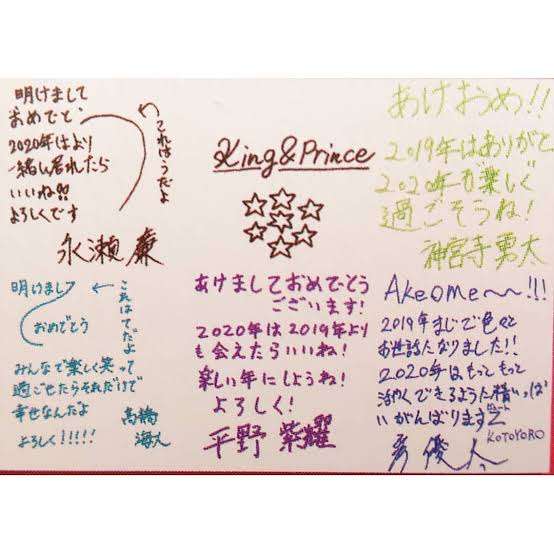 明けまして
おめでと、
2020年はより
一緒に居れたら
いいね!!
よろしくです
永瀬 廉
これはうだよ
King & Prince
あけおめ!!
2019年はありがと
2020年も楽しく
過ごそうね!
神宮寺勇太
明けまして
これはてだよ
おめでとう
みんなで楽しく笑って
過ごせたらそれだけで
幸せなんだよ
よろしく!!!!!
高橋
海人
あけましておめでとう
ございます!
2020年は2019年より
も会えたらいいね!
楽しい年にしようね!
よろしく!
平野 紫耀
AkeOMe〜〜!!!
2019年まじで色々と
お世話になりました!!
2020年はもっともっと
活やくできるよう精いっぱ
いがんばります
KOTOYORO
岸優太